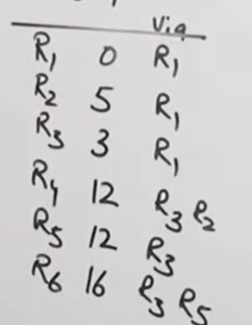 Via
R1 0 R1
R2 5 R1
R3 3 R1
R4 12 R3 R2
R5 12 R3
R6 16 R3 R5